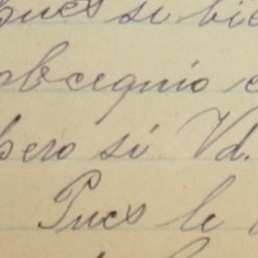 pues si bie
obcequio e
pero si Vd.
Pues le